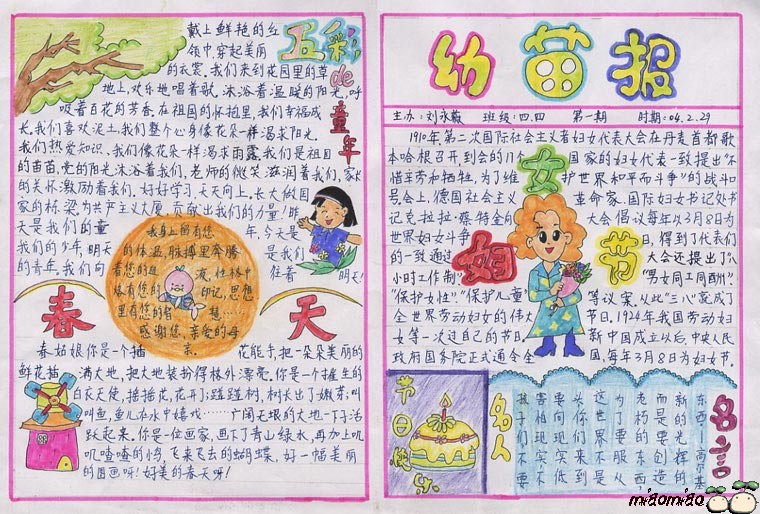 五彩de童年
戴上鲜艳的红
领巾,穿起美丽
的衣裳。我们来到花园里的草
地上,欢乐地唱着歌,沐浴着温暖的阳光,呼
吸着百花的芳香。在祖国的怀抱里,我们幸福成
长。我们喜欢泥土,我们整个心身像花朵一样渴求阳光。
我们热爱知识、我们像花朵一样渴求雨露。我们是祖国
的苗苗,党的阳光沐浴着我们,老师的微笑滋润着我们,家长
的关怀激励着我们,好好学习,天天向上。长大做国
家的栋梁,为共产主义大厦,贡献出我们的力量!昨
天是我们的童年,今天是
我们的少年,明天是我们
的青年。我们向往着明天!
我身上留有您
的体温,脉搏里奔腾
着您的血液,性格中
烙有您的印记,思想
里有您的智慧……
感谢您,亲爱的母
亲。
春天
春姑娘你是一个插花能手,把一朵朵美丽的
鲜花插满大地,把大地装扮得格外漂亮。你是一个催生的
白衣天使,摇摇花,花开;碰碰树,树长出了嫩芽;叫
叫鱼,鱼儿在水中嬉戏……广阔无垠的大地一下子活
跃起来。你是一位画家,画下了青山绿水,再加上叽
叽喳喳的小鸟,飞来飞去的蝴蝶,好一幅美丽
的图画呀!好美的春天呀!
幼苗报
主办:刘永薇 班级:四.四 第一期 时期:04.2.29
妇女节
1910年,第二次国际社会主义者妇女代表大会在丹麦首都歌
本哈根召开,到会的17个国家的妇女代表一致提出"不
惜辛劳和牺牲,为了维护世界和平而斗争"的战斗口
号。会上,德国社会主义革命家、国际妇女书记处书
记克拉拉·蔡特金向大会倡议每年以3月8日为
世界妇女斗争日,得到了代表们
的一致通过。大会还提出了"八
小时工作制"、"男女同工同酬"、
"保护女性"、"保护儿童"等议案。从此"三八"就成了
全世界劳动妇女的伟大节日。1924年,我国劳动妇
女第一次过自己的节日。新中国成立以后,中央人民
政府国务院正式通令全国,每年3月8日为妇女节。
节日快乐
名人名言
东西——高尔基
新的更光辉的
而是要创造
老朽的东西,
为了要服从
这世界不是
你们来到
头向现实低
相向现实不
害
孩子们不要
miaomiao